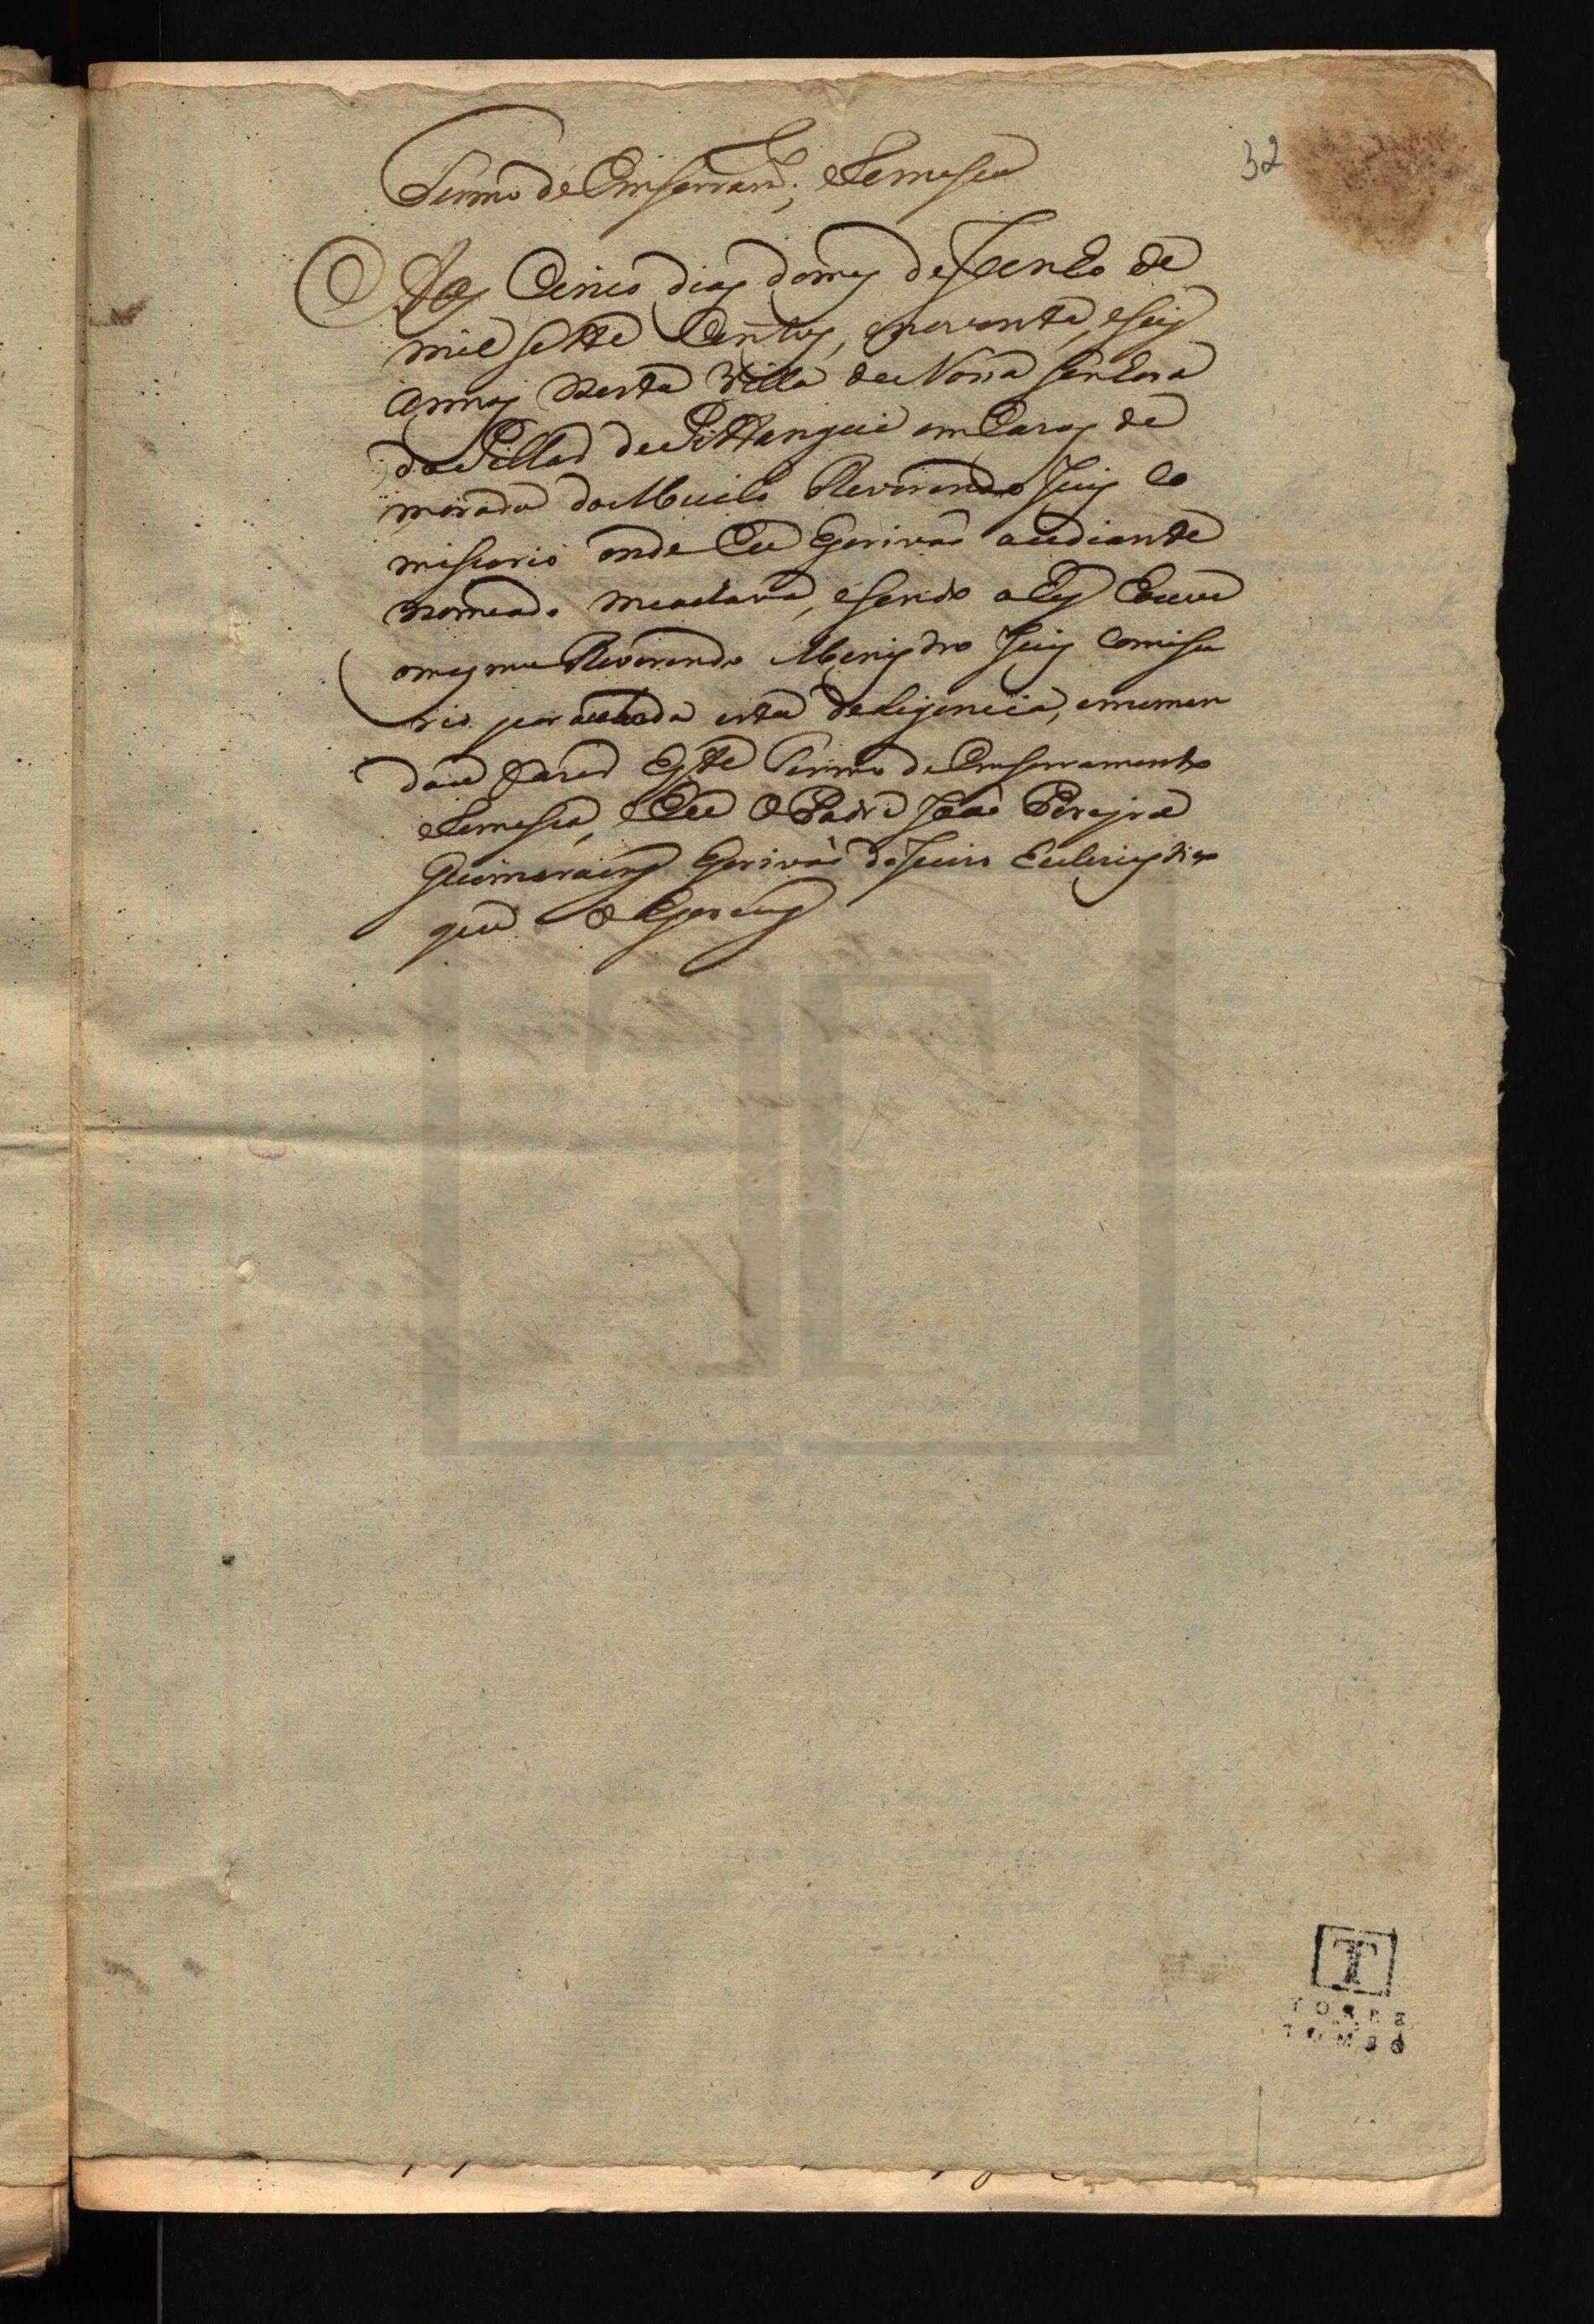 32
Termo de Emserramto, e Remesa
Aos Cinco dias do mes de Junho de
mil sette Centos, e noventa, e seis
annos nesta Villa de Nossa Senhora
do Pillar de Pittangui em Cazas de
morada do Muito Reverendo Juis Co
misario onde Eu Escrivaõ ao diante
nomeado me achava, e sendo ahy houve
o mesmo Reverendo Menistro Juis Comisa
rio por acabada esta deligencia, e me man
dou fazer Este Termo de Emserramento
e Remesa, e Eu O Padre Joaõ Pereyra
Guimaraens Escrivaõ do Juizo Eclesiastico
que o Escrevy
T
TORRE
DO
TOMBO